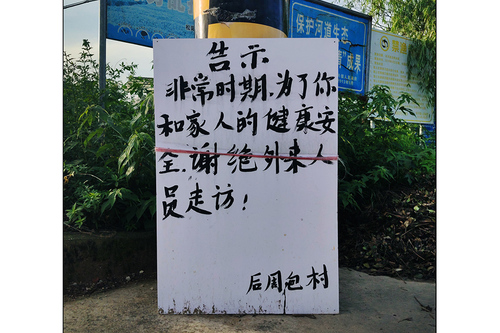 告示
非常时期.为了你
和家人的健康安
全.谢绝外来人
员走访!
后周包村
保护河道生态
成果